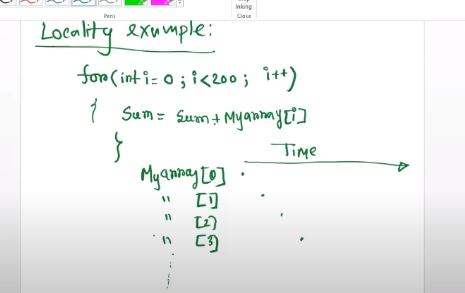 Inking
Pens
Close
Locality example:
for(int i=0; i<200; i++)
{ Sum = Sum + Myarray[i]
}
Time
Myarray[0] .
" [1] .
" [2] .
" [3] .